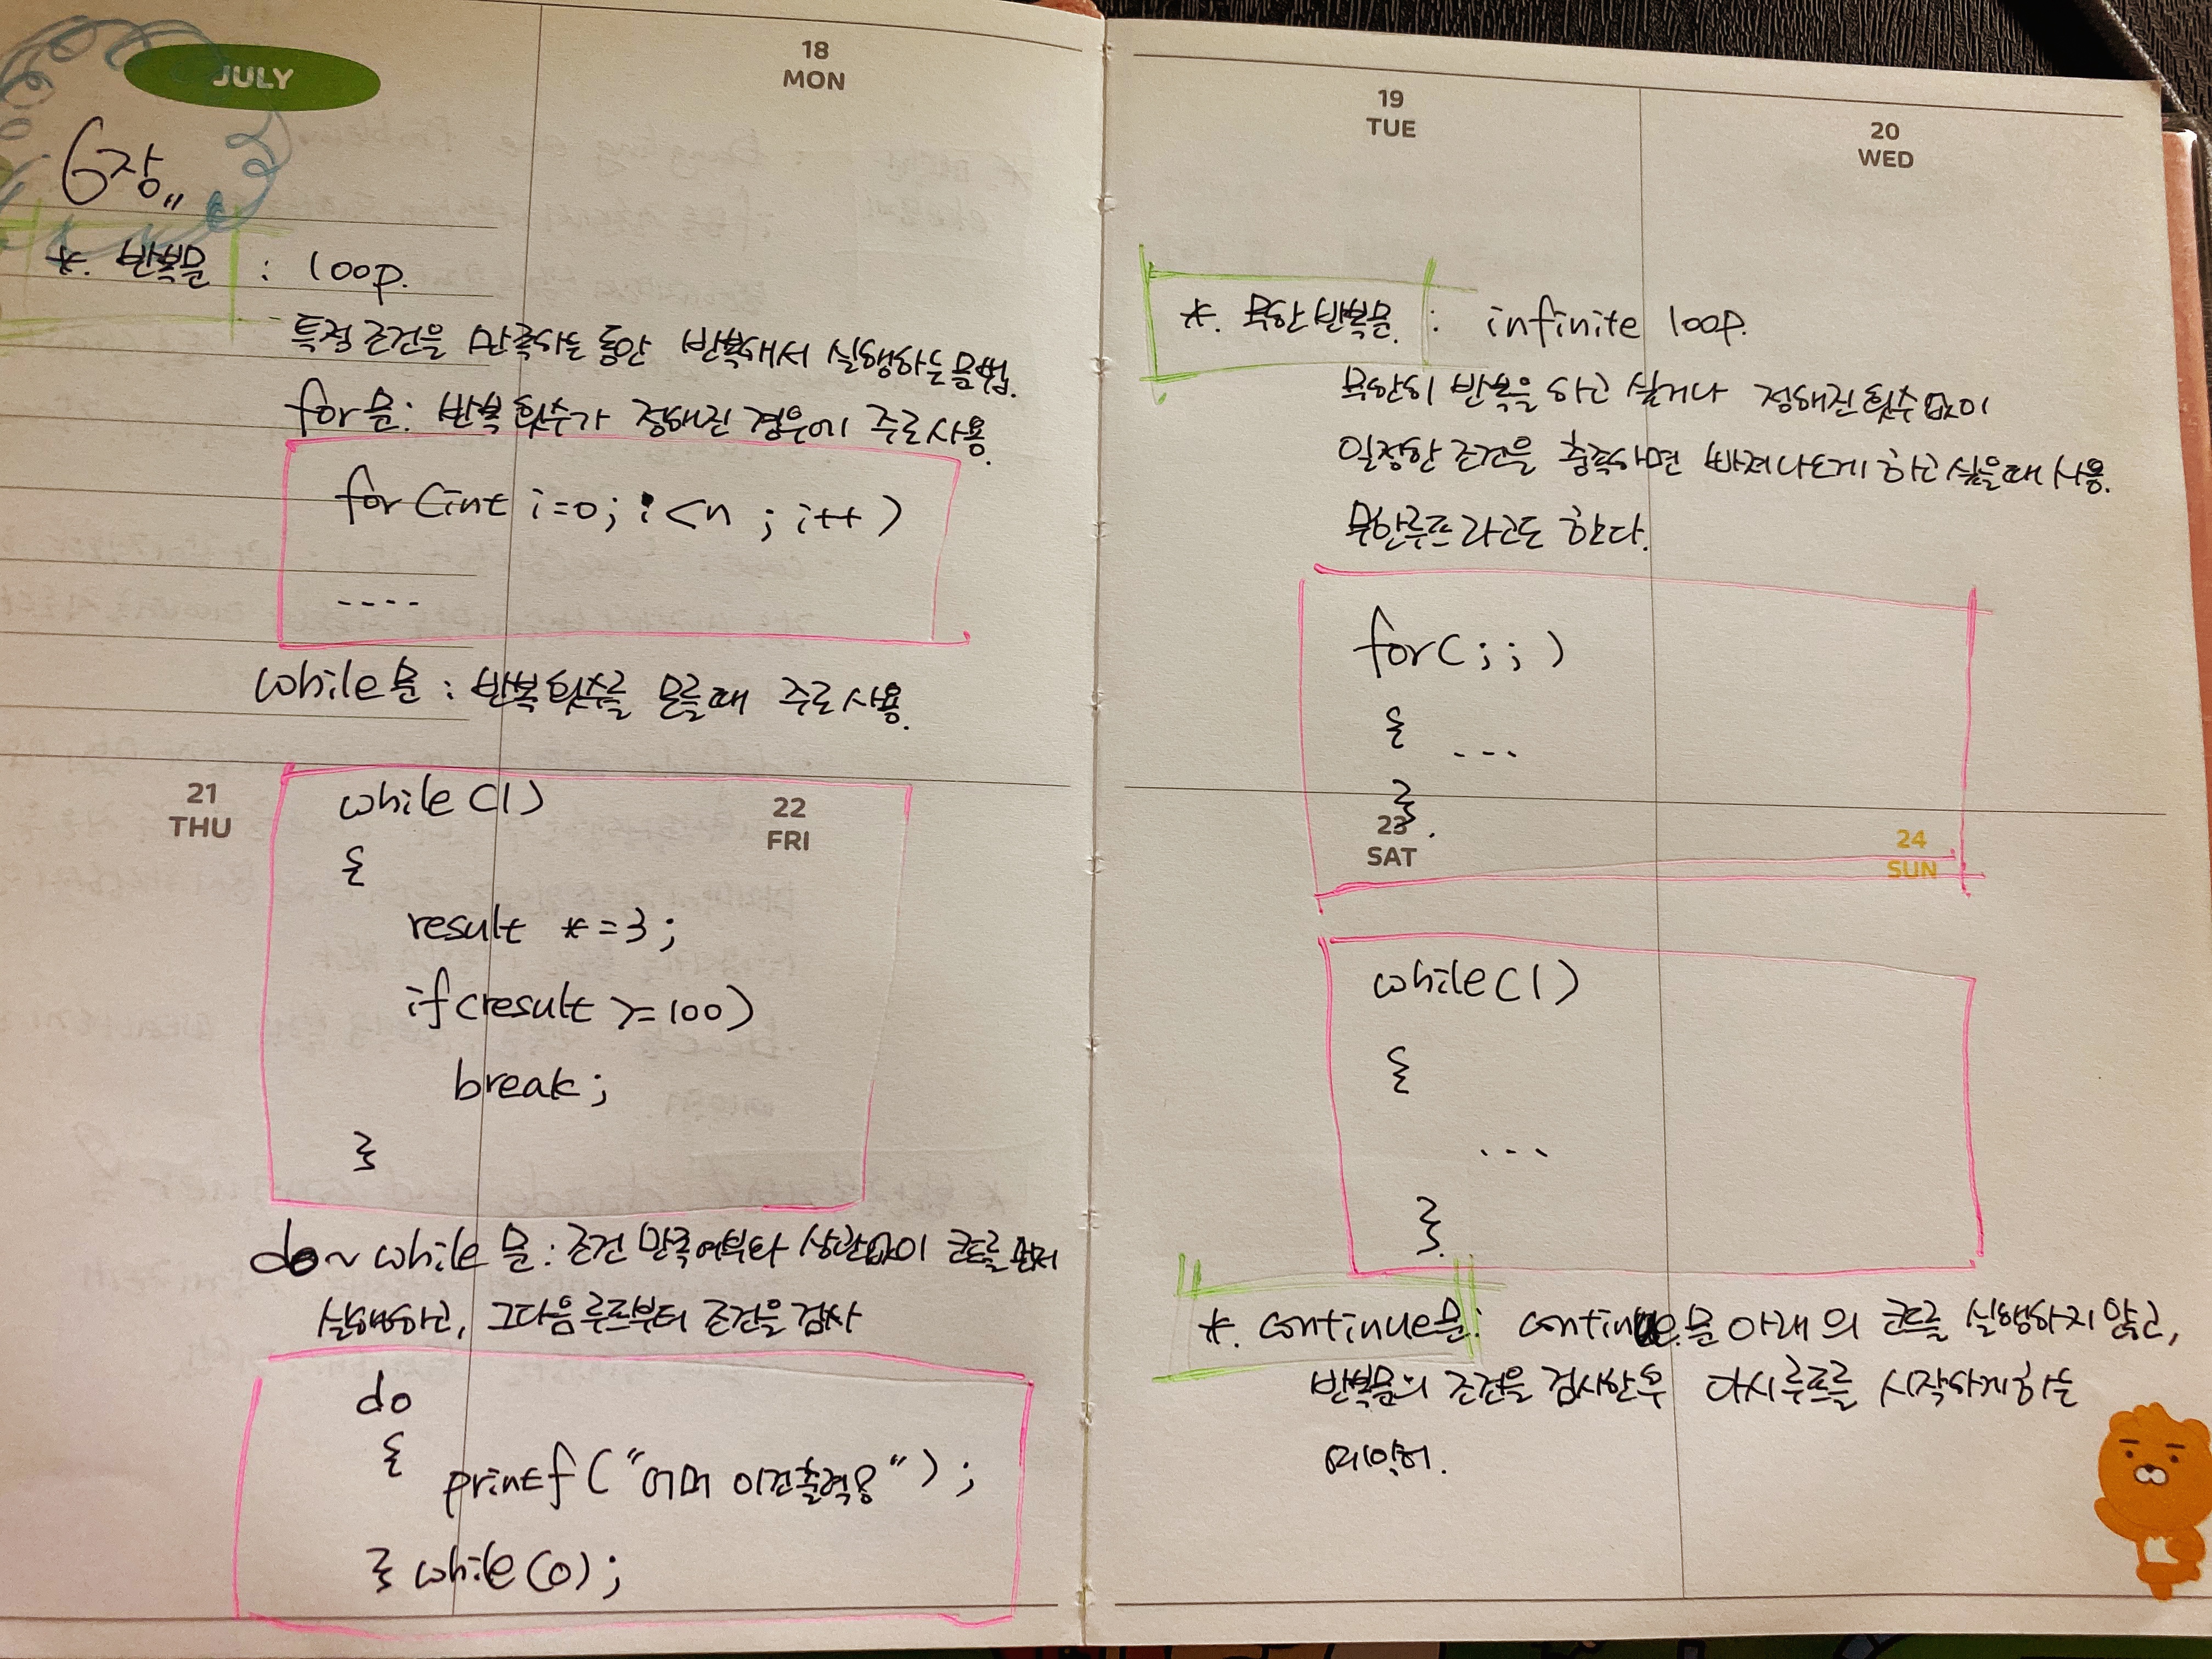 JULY
18
MON
6장
*. 반복문 : loop.
특정 조건을 만족하는 동안 반복해서 실행하는 문법.
for문 : 반복 횟수가 정해진 경우에 주로 사용.
for (int i=0; i<n ; i++)
....
while문 : 반복 횟수를 모를때 주로 사용.
21
THU
22
FRI
while (1)
{
result *=3;
if(result >=100)
break;
}
do~while 문 : 조건 만족여부와 상관없이 코드를 먼저
실행하고, 그다음 루프부터 조건을 검사
do
{
printf("어머 이건출력용");
} while (0);
19
TUE
20
WED
*. 무한 반복문. : infinite loop.
무한히 반복을 하고 싶거나 정해진 횟수 없이
일정한 조건을 충족하면 빠져나오게 하고 싶을때 사용.
무한루프 라고도 한다.
for( ; ; )
{ ...
}.
23
SAT
24
SUN
while(1)
{
...
}.
*. continue문 : continue.문 아래의 코드를 실행하지 않고,
반복문의 조건을 검사한후 다시 루프를 시작하게 하는
예약어.